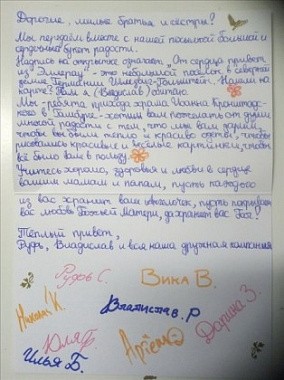 Дорогие, милые братья и сёстры!
Мы передаём вместе с нашей посылкой большой и
сердечный букет радости.
Надпись на открытке означает "От сердца привет
из "Эллерау" - это небольшой посёлок в северной
земле Германии Шлезвиг-Гольштейн. Нашли на
карте? Там я (Владислав) обитаю.
Мы - ребята прихода храма Иоанна Кронштадт-
ского в Гамбурге - хотим вам пожелать от души
много радости с тем, что мы вам дарим,
чтобы вы были тепло и красиво одеты, чтобы
рисовались красивые и весёлые картинки, чтобы
всё было вам в пользу.
Учитесь хорошо, здоровья и любви в сердце
вашим мамам и папам, пусть каждого
из вас хранит ваш ангелочек, пусть покрывает
вас любовь Божьей Матери, да хранит вас Бог!
Тёплый привет,
Рудь, Владислав и вся наша дружная компания
Рудь С. Вика В.
Николай К. Владислав.Р Дарина З.
Юля Б.
Илья Б. Артём